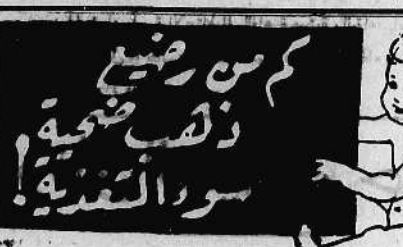 كم من رضيع
ذهب ضحية
سوء التغذية!